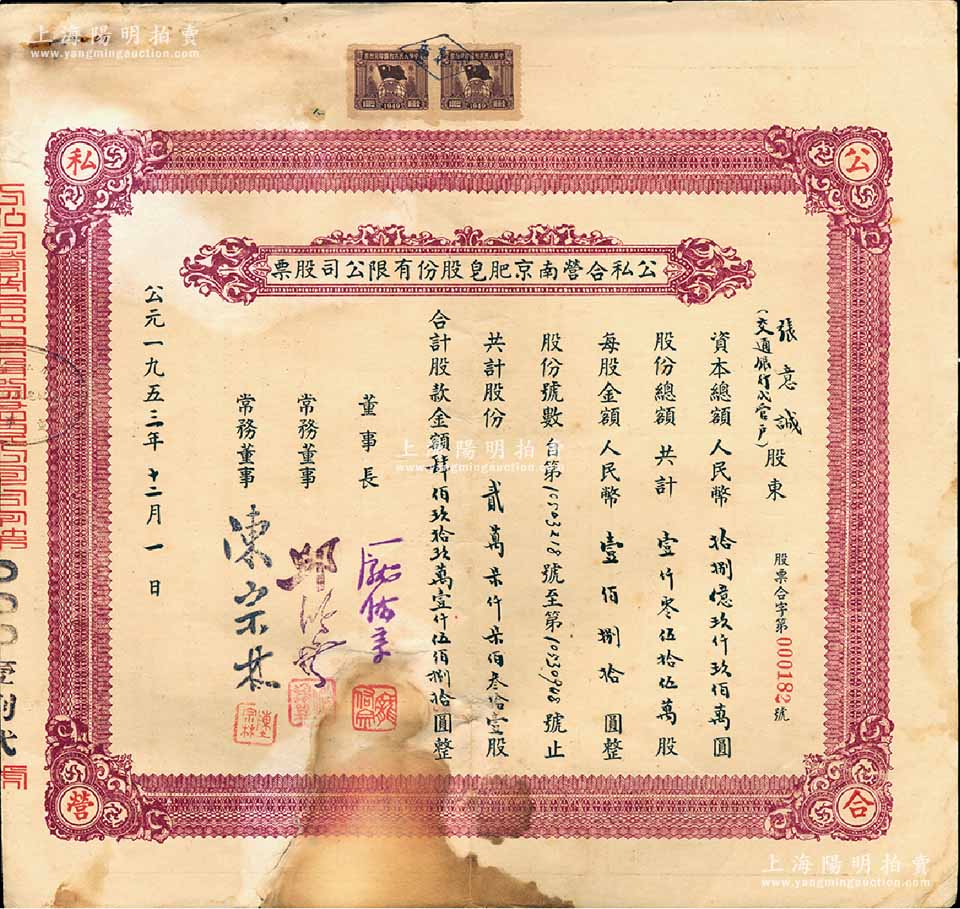 上海陽明拍賣
www.yangmingauction.com
公
私
合
營
公私合營南京肥皂股份有限公司股票
股票合字第000182號
張意誠股東
(交通銀行代管戶)
資本總額人民幣拾捌億玖仟玖佰萬圓
股份總額共計壹仟零伍拾伍萬股
每股金額人民幣壹佰捌拾圓整
股份號數自第10503218號至第10530948號止
共計股份貳萬柒仟柒佰叁拾壹股
合計股款金額肆佰玖拾玖萬壹仟伍佰捌拾圓整
董事長
常務董事
常務董事 陳宗林
公元一九五三年十二月一日
1949
1949
上海陽明拍賣
www.yangmingauction.com
上海陽明拍賣
www.yangmingauction.com